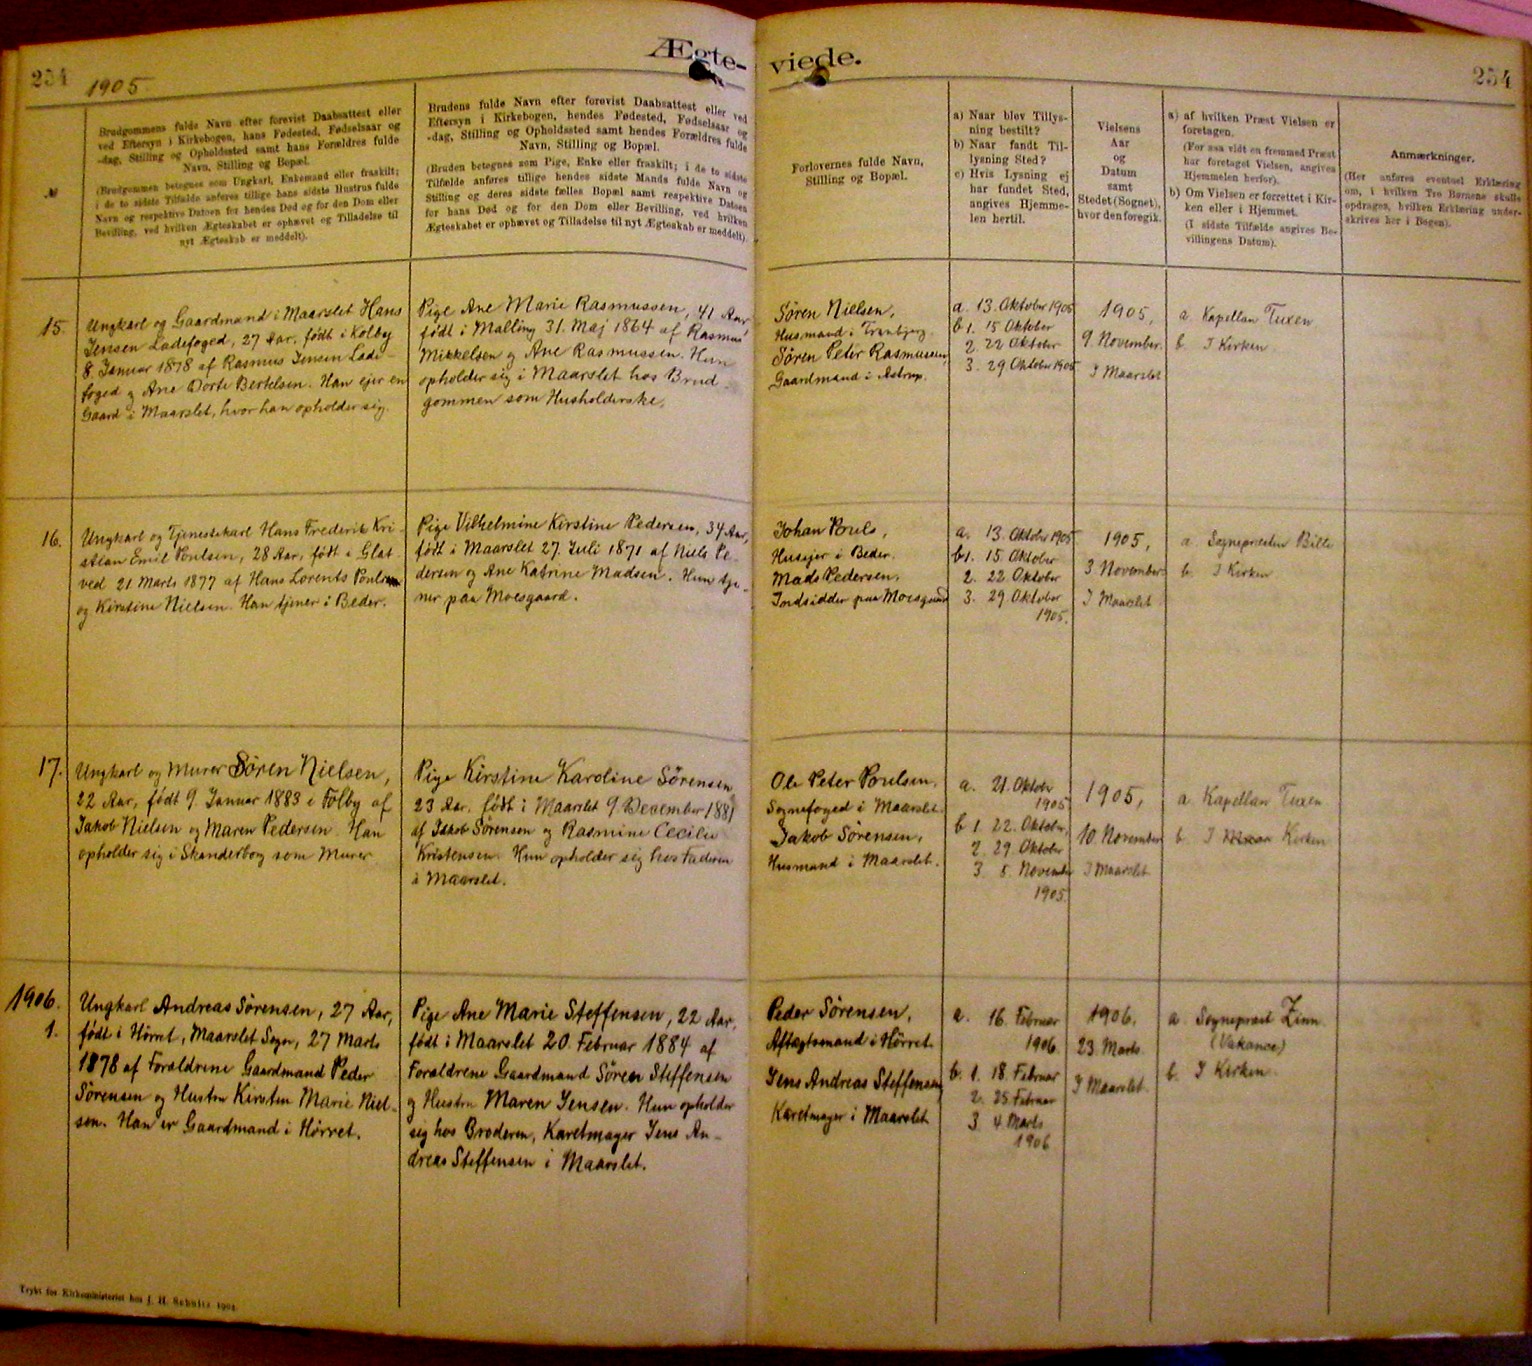 254
1905.
Ægte-
viede.
254
№
Brudgommens fulde Navn efter forevist Daabsattest eller
ved Eftersyn i Kirkebogen, hans Fødested, Fødselsaar og
-dag, Stilling og Opholdssted samt hans Forældres fulde
Navn, Stilling og Bopæl.
(Brudgommen betegnes som Ungkarl, Enkemand eller fraskilt;
i de to sidste Tilfælde anføres tillige hans sidste Hustrus fulde
Navn og respektive Datoen for hendes Død og for den Dom eller
Bevilling, ved hvilken Ægteskabet er ophævet og Tilladelse til
nyt Ægteskab er meddelt).
Brudens fulde Navn efter forevist Daabsattest eller ved
Eftersyn i Kirkebogen, hendes Fødested, Fødselsaar og
-dag, Stilling og Opholdssted samt hendes Forældres fulde
Navn, Stilling og Bopæl.
(Bruden betegnes som Pige, Enke eller fraskilt; i de to sidste
Tilfælde anføres tillige hendes sidste Mands fulde Navn og
Stilling og deres sidste fælles Bopæl samt respektive Datoen
for hans Død og for den Dom eller Bevilling, ved hvilken
Ægteskabet er ophævet og Tilladelse til nyt Ægteskab er meddelt).
Forlovernes fulde Navn,
Stilling og Bopæl.
a) Naar blev Tillys-
ning bestilt?
b) Naar fandt Til-
lysning Sted?
c) Hvis Lysning ej
har fundet Sted,
angives Hjemme-
len hertil.
Vielsens
Aar
og
Datum
samt
Stedet (Sognet),
hvor den foregik.
a) af hvilken Præst Vielsen er
foretagen.
(For saa vidt en fremmed Præst
har foretaget Vielsen, angives
Hjemmelen herfor).
b) Om Vielsen er forrettet i Kir-
ken eller i Hjemmet.
(I sidste Tilfælde angives Be-
villingens Datum).
Anmærkninger.
(Her anføres eventuel Erklæring
om, i hvilken Tro Børnene skulle
opdrages, hvilken Erklæring under-
skrives her i Bogen).
15.
Ungkarl og Gaardmand i Maarslet Hans
Jensen Ladefoged, 27 Aar, født i Kolby
8. Januar 1878 af Rasmus Jensen Lade-
foged og Ane Dorte Bertelsen. Han ejer en
Gaard i Maarslet, hvor han opholder sig.
Pige Ane Marie Rasmussen, 41 Aar,
født i Malling 31. Maj 1864 af Rasmus
Mikkelsen og Ane Rasmussen. Hun
opholder sig i Maarslet hos Brud-
gommen som Husholderske.
Søren Nielsen,
Husmand i Tranbjerg.
Søren Peter Rasmussen,
Gaardmand i Astrup.
a. 13. Oktober 1905
b 1. 15 Oktober
2. 22 Oktober
3. 29 Oktober 1905
1905,
9. November.
I Maarslet
a. Kapellan Tuxen
b. I Kirken.
16.
Ungkarl og Tjenestekarl Hans Frederik Kri-
stian Emil Poulsen, 28 Aar, født i Glat-
ved 21 Marts 1877 af Hans Lorents Poulsen
og Kirstine Nielsen. Han tjener i Beder.
Pige Vilhelmine Kirstine Pedersen, 34 Aar,
født i Maarslet 27. Juli 1871 af Niels Pe-
dersen og Ane Katrine Madsen. Hun tje-
ner paa Moesgaard.
Johan Pouls,
Husejer i Beder.
Mads Pedersen,
Indsidder paa Moesgaard
a. 13. Oktober 1905
b 1. 15. Oktober
2. 22. Oktober
3. 29. Oktober
1905.
1905,
3 November
I Maarslet
a. Sognepræsten Bille
b. I Kirken
17.
Ungkarl og Murer Søren Nielsen,
22 Aar, født 9. Januar 1883 i Folby af
Jakob Nielsen og Maren Pedersen. Han
opholder sig i Skanderbog som Murer
Pige Kirstine Karoline Sørensen
23 Aar. født i Maarslet 9 December 1881
af Jakob Sørensen og Rasmine Cecilie
Kristensen. Hun opholder sig hos Faderen
i Maarslet.
Ole Peter Poulsen.
Sognefoged i Maarslet.
Jakob Sørensen,
Husmand i Maarslet.
a. 21. Oktober
1905
b 1. 22. Oktober,
2. 29. Oktober
3. 5. November
1905.
1905,
10. November
I Maarslet
a. Kapellan Tuxen
b. I Kirken
1906.
1.
Ungkarl Andreas Sørensen, 27 Aar,
født i Hørret, Maarslet Sogn, 27 Marts
1878 af Forældrene Gaardmand Peder
Sørensen og Hustru Kirsten Marie Niel-
sen. Han er Gaardmand i Hørret.
Pige Ane Marie Steffensen, 22 Aar,
født i Maarslet 20. Februar 1884 af
Forældrene Gaardmand Søren Steffensen
og Hustru Maren Jensen. Hun opholder
sig hos Broderen, Karetmager Jens An-
dreas Steffensen i Maarslet.
Peder Sørensen,
Aftægtsmand i Hørret
Jens Andreas Steffensen,
Karetmager i Maarslet
a. 16. Februar
1906.
b. 1. 18. Februar
2. 25. Februar
3. 4. Marts
1906
1906,
23. Marts
I Maarslet.
a. Sognepræst Zinn
(Vakance)
b. I Kirken.
Trykt for Kirkeministeriet hos J. H. Schultz 1904.